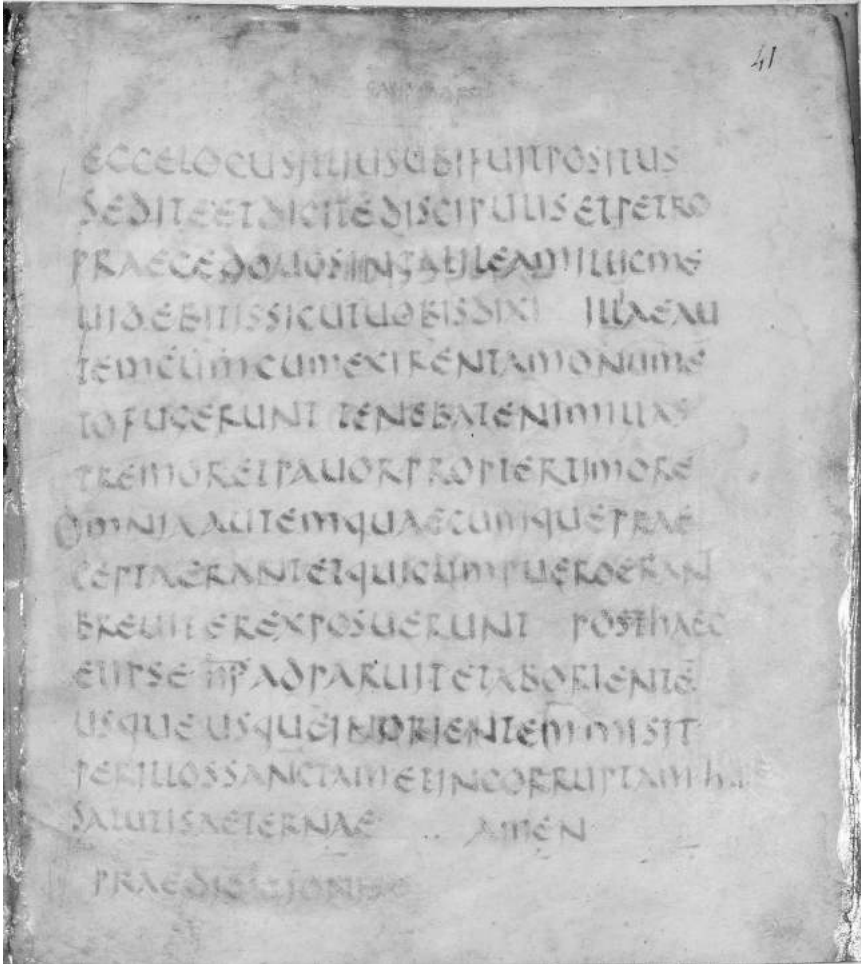 41
ECCELOCUSILLIUSUBIFUITPOSITUS
SEDITEETDICITEDISCIPULISETPETRO
PRAECEDOUOSINGALILEAMILLICME
UIDEBITISSICUTUOBISDIXI ILLAEAU
TEMCUMCUMEXIRENTAMONUME
TOFUGERUNT TENEBATENIMILLAS
TREMORETPAUORPROPTERTIMORE
OMNIAAUTEMQUAECUMQUEPRAE
CEPTAERANTETQUICUMPUEROERAN
BREUITEREXPOSUERUNT POSTHAEC
ETIPSE ADPARUITETABORIENTE
USQUEUSQUEINORIENTEMMISIT
PERILLOSSANCTAMETINCORRUPTAM
SALUTISAETERNAE AMEN